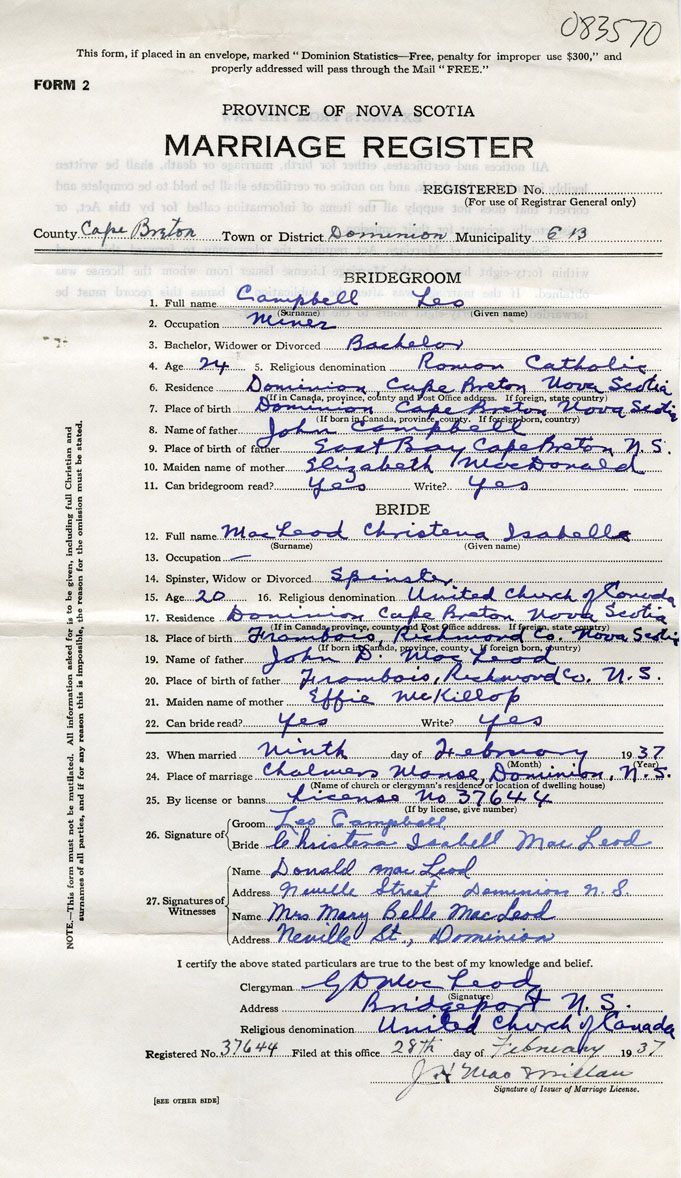 083570
This form, if placed in an envelope, marked "Dominion Statistics—Free, penalty for improper use $300," and
properly addressed will pass through the Mail "FREE."
FORM 2
PROVINCE OF NOVA SCOTIA
MARRIAGE REGISTER
REGISTERED No.
(For use of Registrar General only)
County Cape Breton Town or District Dominion Municipality
BRIDEGROOM
1. Full name Campbell Leo
(Surname) (Given name)
2. Occupation Miner
3. Bachelor, Widower or Divorced Bachelor
4. Age 24 5. Religious denomination Roman Catholic
6. Residence Dominion Cape Breton Nova Scotia
(If in Canada, province, county and Post Office address. If foreign, state country)
7. Place of birth Dominion Cape Breton Nova Scotia
(If born in Canada, province, county. If foreign-born, country)
8. Name of father John Campbell
9. Place of birth of father East Bay Cape Breton N.S.
10. Maiden name of mother Elizabeth MacDonald
11. Can bridegroom read? Yes Write? Yes
BRIDE
12. Full name MacLeod Christena Isabella
(Surname) (Given name)
13. Occupation —
14. Spinster, Widow or Divorced Spinster
15. Age 20 16. Religious denomination United Church of Canada
17. Residence Dominion Cape Breton Nova Scotia
(If in Canada, province, county and Post Office address. If foreign, state country)
18. Place of birth Frambois, Richmond Co. Nova Scotia
(If born in Canada, province, county. If foreign born, country)
19. Name of father John D. MacLeod
20. Place of birth of father Frambois, Richmond Co. N.S.
21. Maiden name of mother Effie McKillop
22. Can bride read? Yes Write? Yes
23. When married Ninth day of February 1937
(Month) (Year)
24. Place of marriage Chalmers Manse, Dominion, N.S.
(Name of church or clergyman's residence or location of dwelling house)
25. By license or banns License No 37644
(If by license, give number)
26. Signature of Groom Leo Campbell
Bride Christena Isabell MacLeod
27. Signatures of Witnesses
Name Donald MacLeod
Address Neville Street Dominion N.S.
Name Mrs Mary Belle MacLeod
Address Neville St., Dominion
I certify the above stated particulars are true to the best of my knowledge and belief.
Clergyman G D MacLeod
(Signature)
Address Bridgeport N.S.
Religious denomination United Church of Canada
Registered No. 37644 Filed at this office 28th day of February 1937
MacMillan
Signature of Issuer of Marriage License.
[SEE OTHER SIDE]
NOTE.—This form must not be mutilated. All information asked for is to be given, including full Christian and
surnames of all parties, and if for any reason this is impossible, the reason for the omission must be stated.